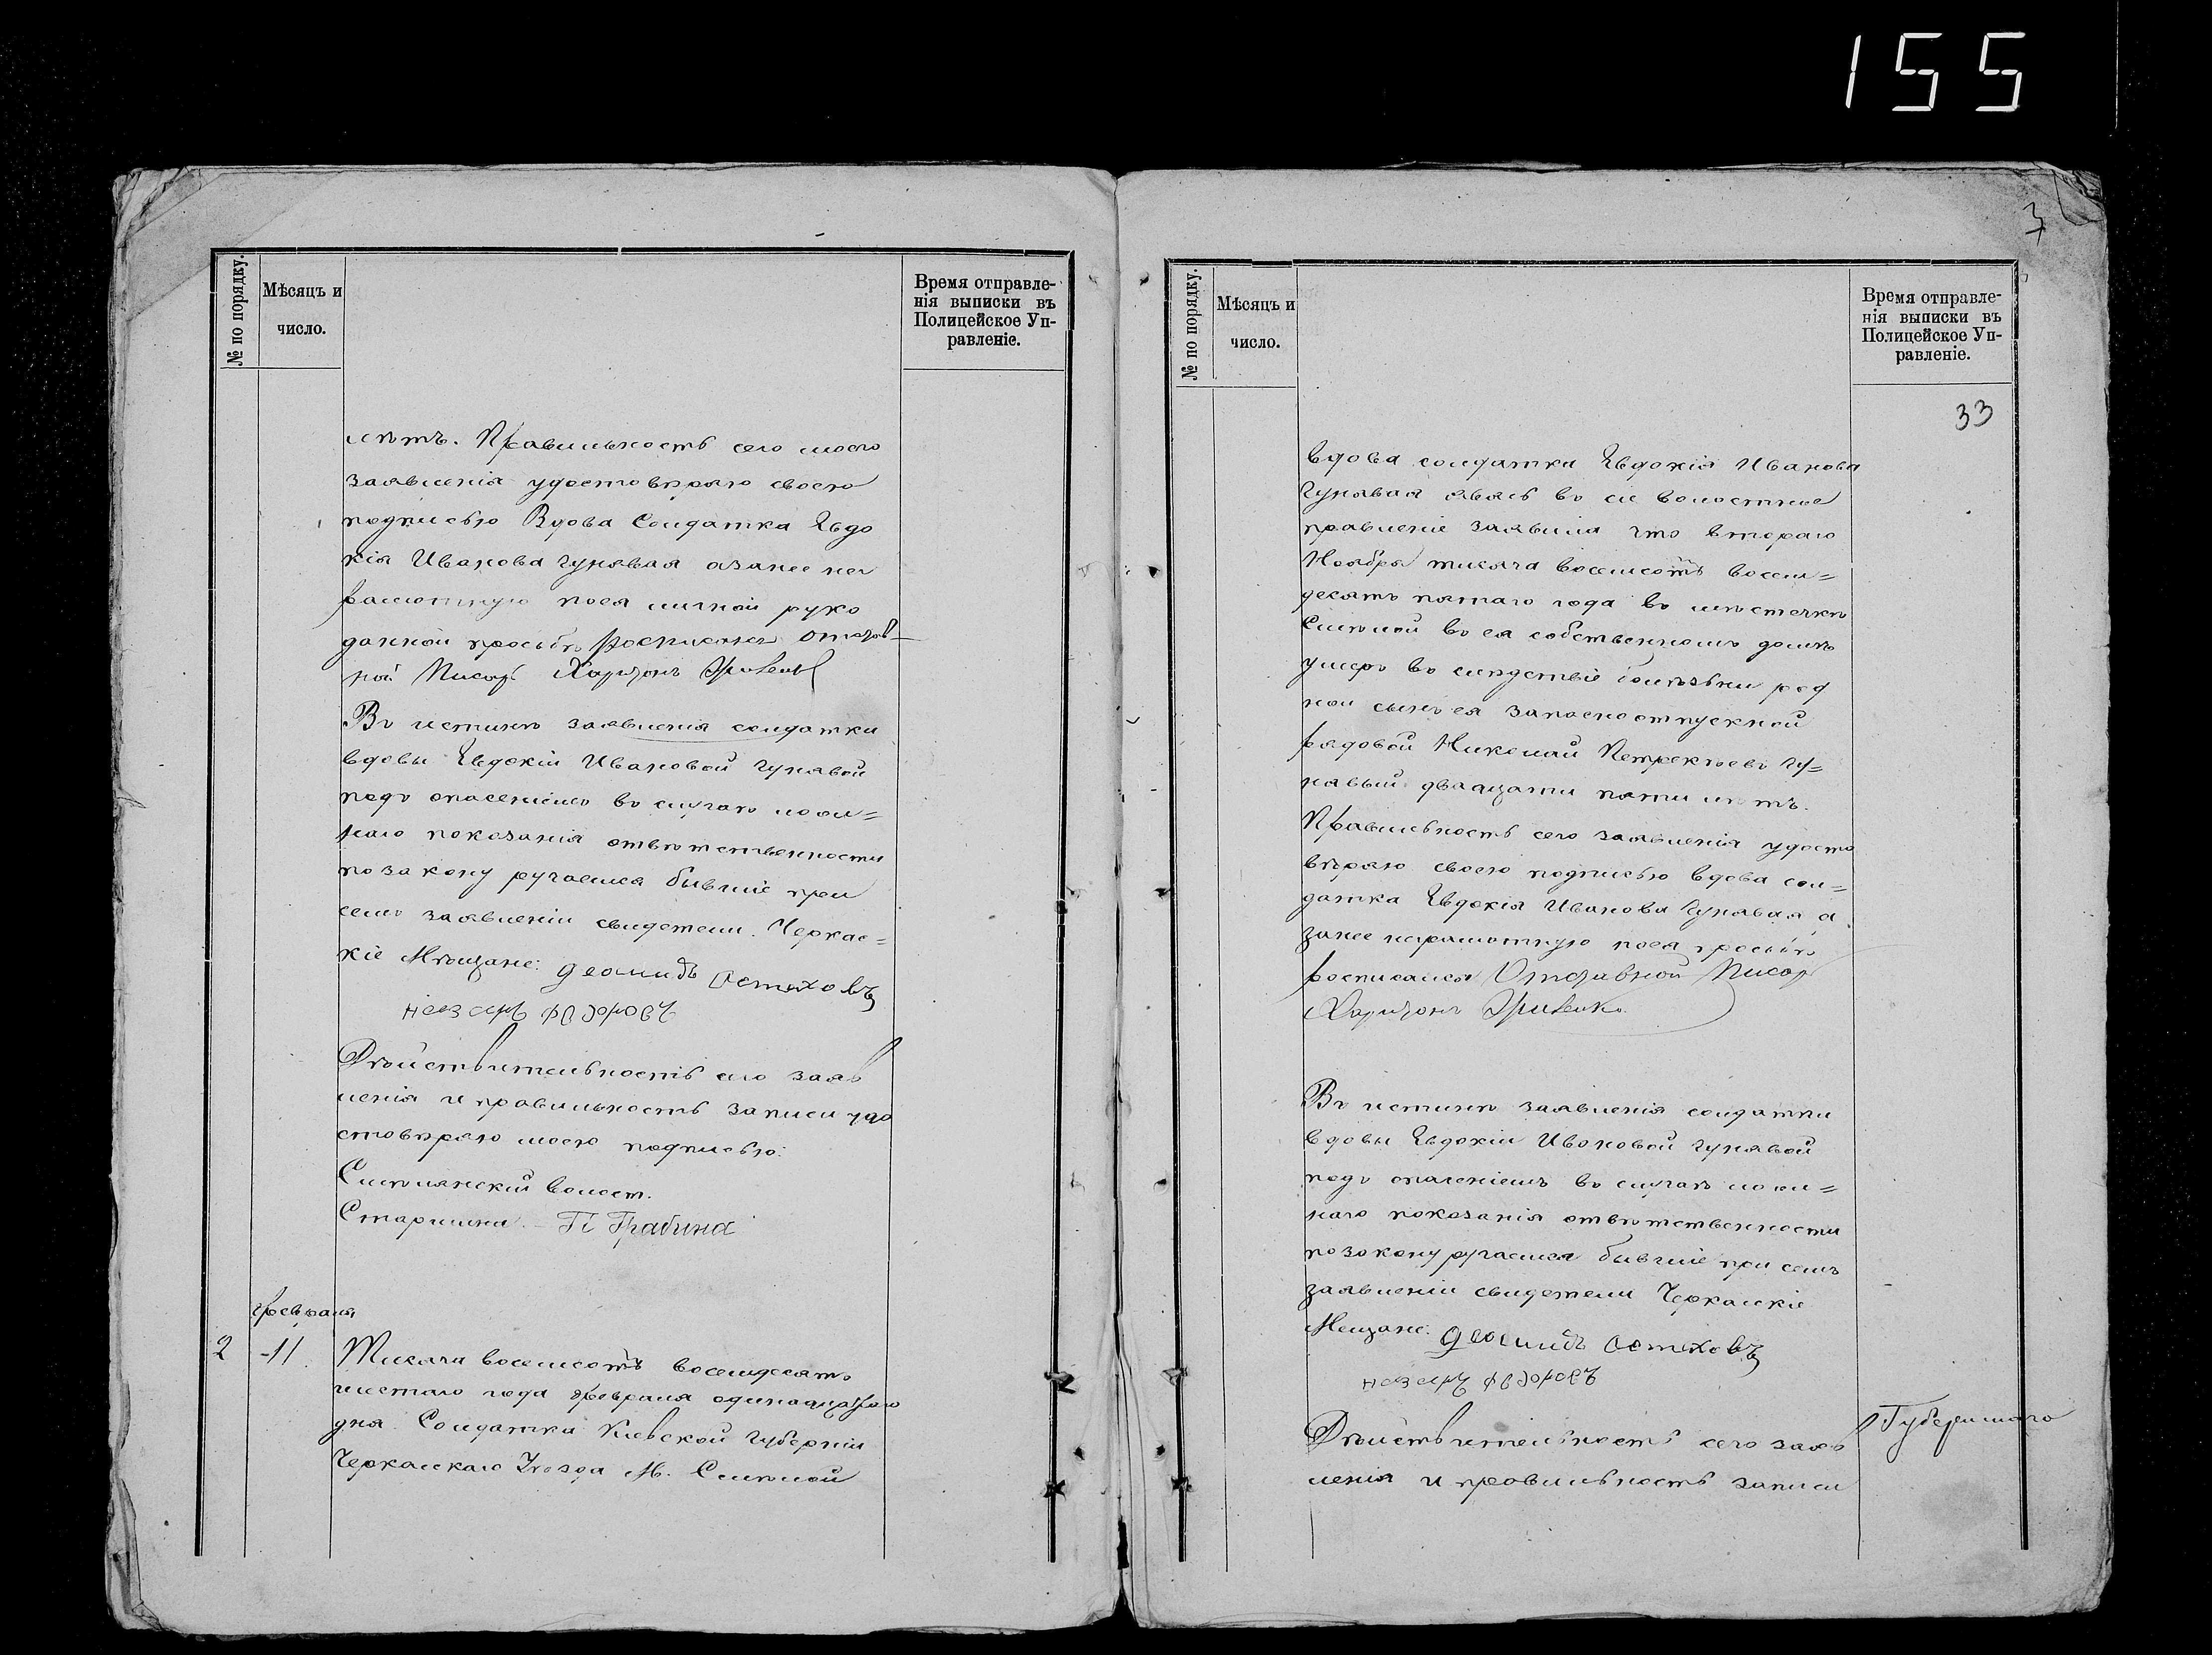 155
№ по порядку.
Мѣсяцъ и
число.
Время отправле-
нія выписки въ
Полицейское Уп-
равленіе.
лѣтъ. Правильность сего моего
заявленія удостовѣряю своею
подписью Вдова Солдатка Евдо
кія Иванова Гунявая азанее не
грамотную поея личной руко
данной просьбѣ росписался
ной Писарь Харитонъ
Въ истинѣ заявленія солдатки
вдовы Евдокіи Ивановой Гунявой
подъ опасеніемъ въ случаѣ лож=
наго показанія отвѣтственности
по закону ручаемся бывшіе при
семъ заявленіи свидетели. Черкас=
кіе Мѣщане: Деомидъ Остаховъ
Назаръ Фѳдоровъ
Дѣйствительность сего заяв
ленія и правильность записи удо
стовѣряю моею подписью:
Смѣлянскій Волост.
Старшина. П Грабина
Февраля
2 -11. Тисяча восемсотъ восемдесятъ
шестаго года Февраля одинадцатаго
дня Солдатка Кіевской Губерніи
Черкаскаго Уезда М. Смѣлой
3
№ по порядку.
Мѣсяцъ и
число.
Время отправле-
нія выписки въ
Полицейское Уп-
равленіе.
33
вдова солдатка Евдокія Иванова
Гунявая явясь въ сіе волостное
правленіе заявила что втораго
Ноября тисяча восемсотъ восем=
десятъ пятаго года въ мѣстечкѣ
Смѣлой въ ея собственномъ домѣ
умеръ въ слѣдствіе болѣзьни род
ной сынъ ея запасноотпускной
рядовой Николай Петрокѣевъ Гу=
нявый двадцати пяти лѣтъ.
Правильность сего заявленія удосто
вѣряю своею подписью вдова сол=
датка Евдокія Иванова Гунявая а
занее неграмотную поея просьбѣ
росписался Писарь
Харитонъ
Въ истинѣ заявленія солдатки
вдовы Евдокіи Ивановой Гунявой
подъ опасеніемъ въ случаѣ лож=
наго показанія отвѣтственности
позакону ручаемся бывшіе при семъ
заявленіи свидетели Черкаскіе
Мещане: Деомидъ Остаховъ
Назаръ Фѳдоровъ
Дѣйствительность сего заяв
ленія и правильность записи